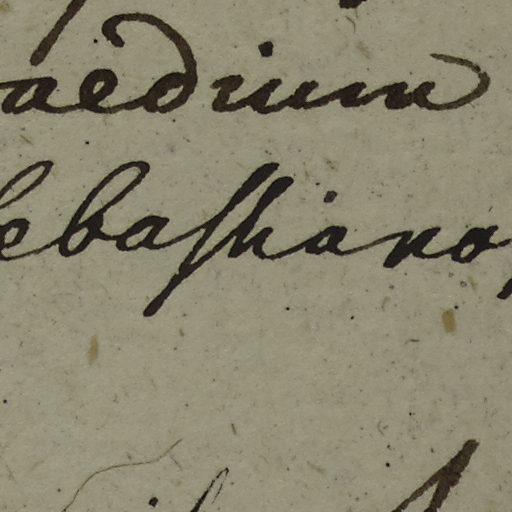 aedium
ebastiano,